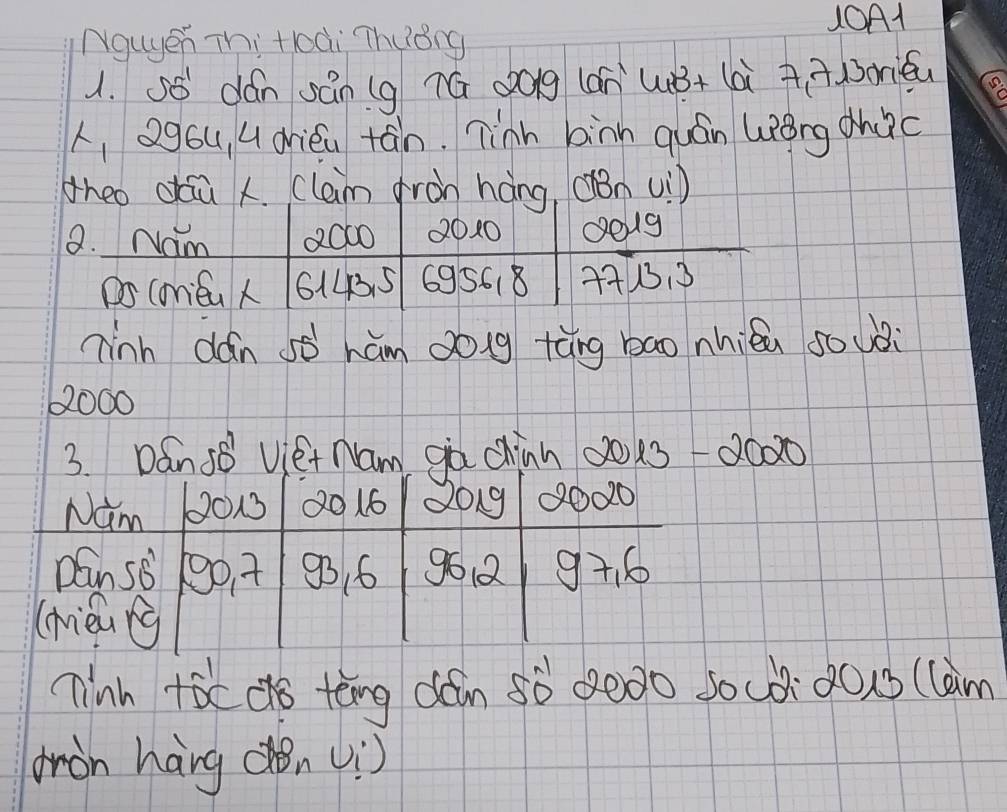 10A1
Nguyễn Thị Hoài Thương
1. Số dân sản lg TG 2019 lần lượt là 7,713 triệu
2964,4 triệu tấn. Tính bình quân lương thực
theo đầu (làm tròn hàng đơn vị)
2. Năm 2000 2010 2019
DS (triệu 6143,5 6956,8 7713,3
Tính dân số năm 2019 tăng bao nhiêu so với
2000
3. Dân số Việt Nam gia đình 2013 - 2020
Năm 2013 2016 2019 2020
Dân số 90,7 93,6 96,2 97,6
(triệu ng
Tính tốc độ tăng dân số 2020 so với 2013 (làm
tròn hàng đơn vị)